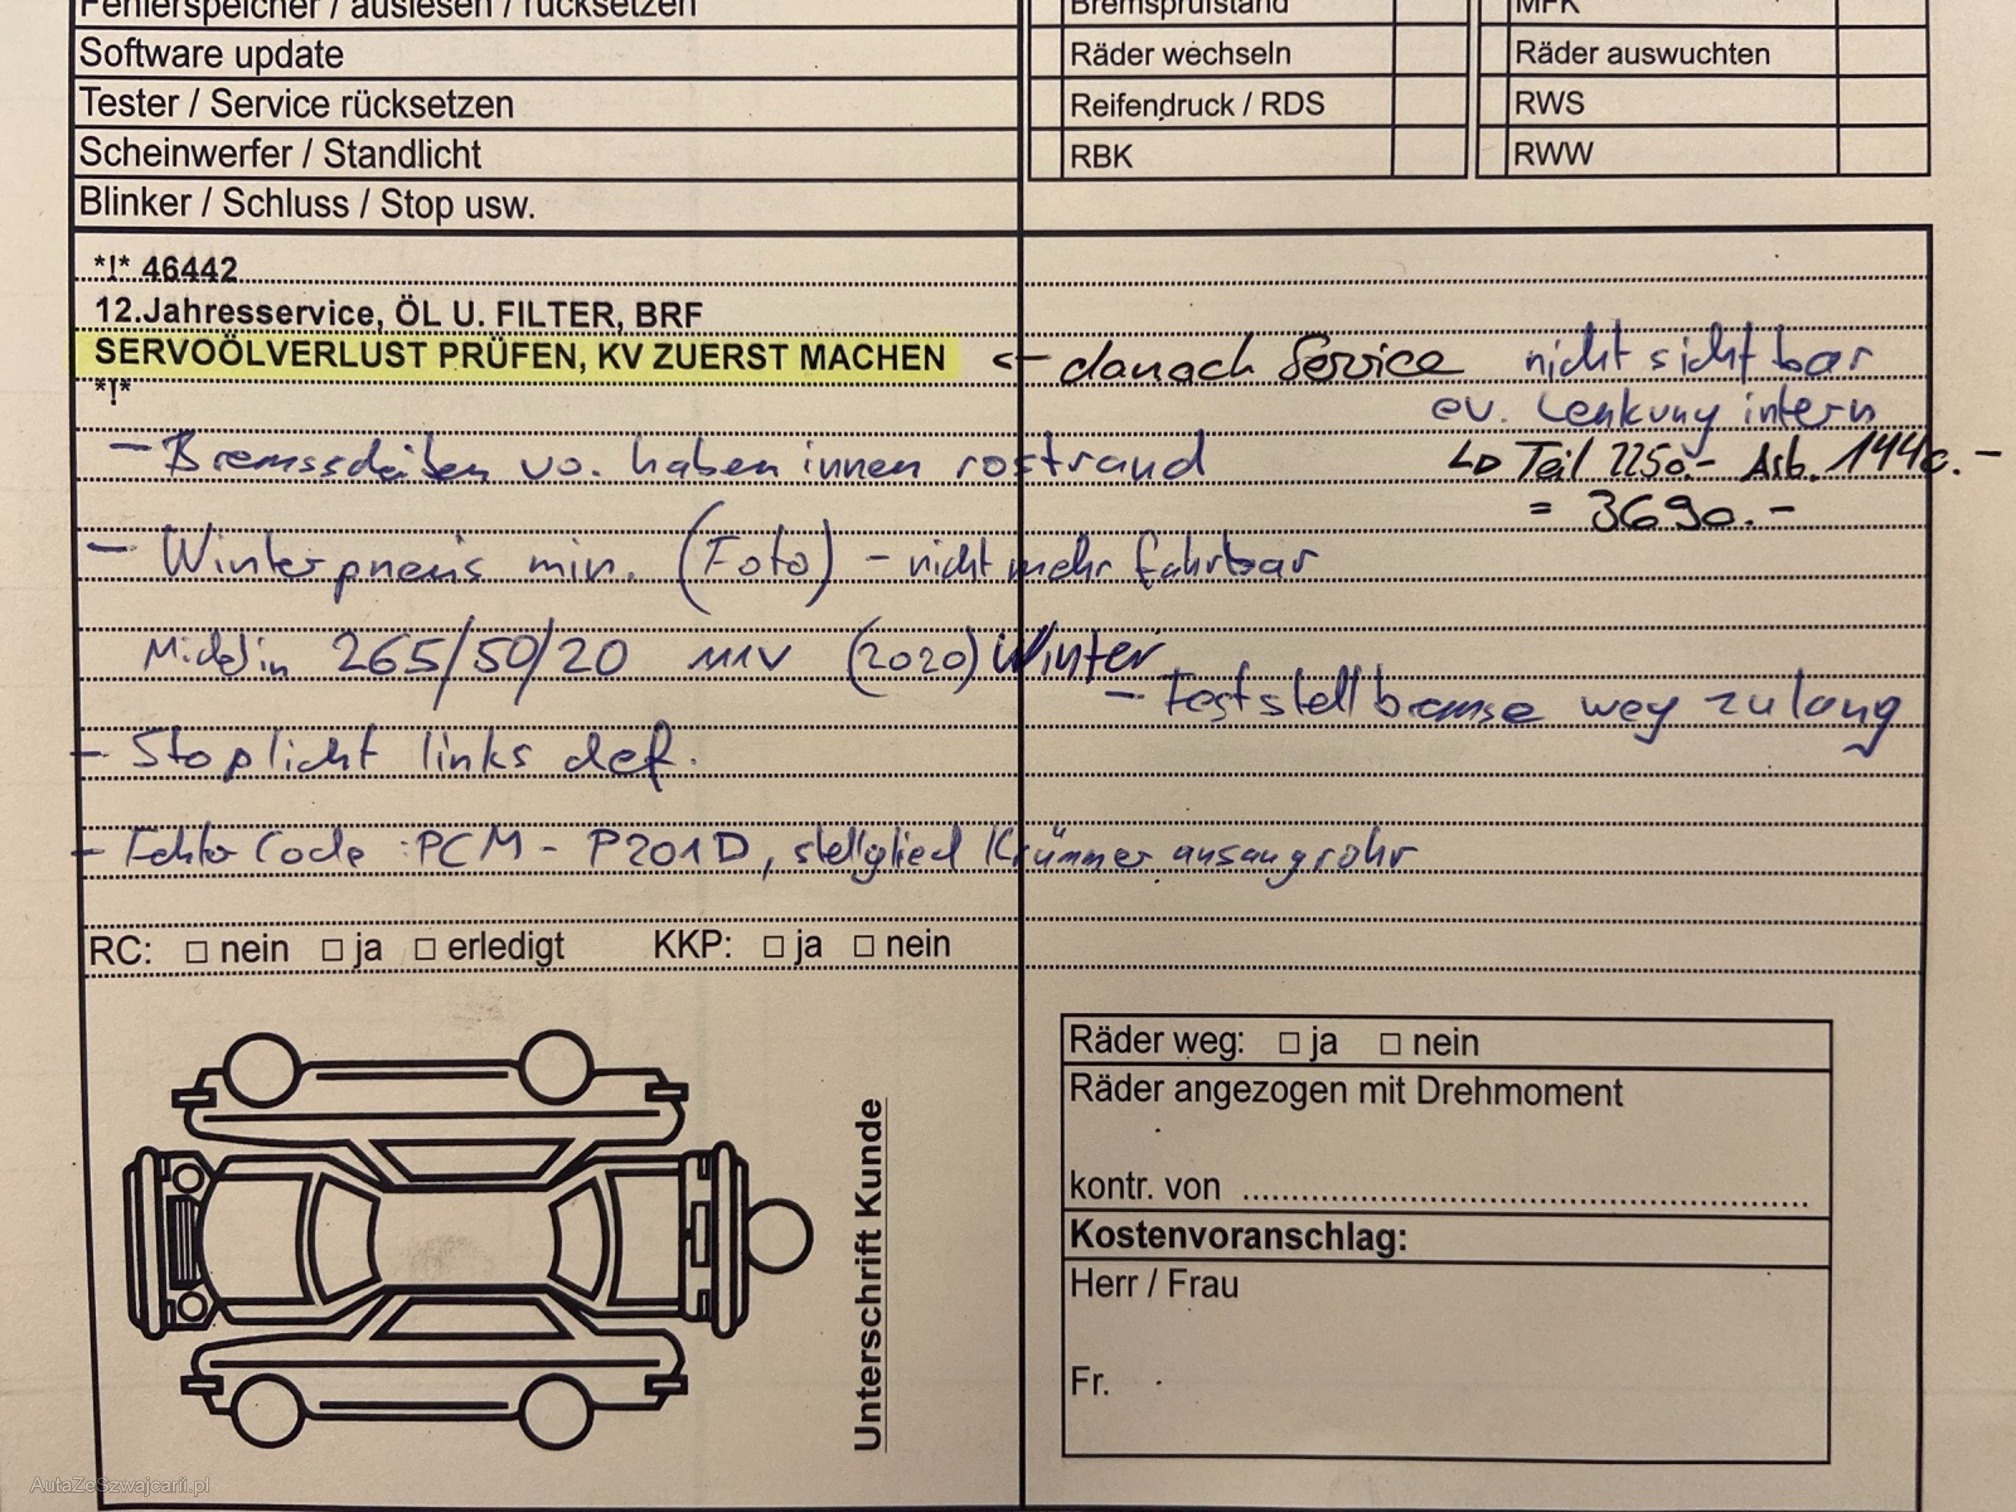 Fehlerspeicher / auslesen / rücksetzen
Bremsprüfstand
MFK
Software update
Räder wechseln
Räder auswuchten
Tester / Service rücksetzen
Reifendruck / RDS
RWS
Scheinwerfer / Standlicht
RBK
RWW
Blinker / Schluss / Stop usw.
*!* 46442
12.Jahresservice, ÖL U. FILTER, BRF
SERVOÖLVERLUST PRÜFEN, KV ZUERST MACHEN <- danach Service nicht sichtbar
*!*
ev. Lenkung intern
- Bremsscheiben vo. haben innen rostrand
Teil 2250.- Arb. 1440.-
= 3690.-
- Winterpneus min. (Foto) - nicht mehr fahrbar
Michelin 265/50/20 111V (2020) Winter
- Feststellbremse weg zu lang
- Stoplicht links def.
- Fehler Code : PCM - P201D, stellglied Krümmer ansaugrohr
RC: □ nein □ ja □ erledigt KKP: □ ja □ nein
Räder weg: □ ja □ nein
Räder angezogen mit Drehmoment
kontr. von
Kostenvoranschlag:
Herr / Frau
Fr.
Unterschrift Kunde
AutaZeSzwajcarii.pl